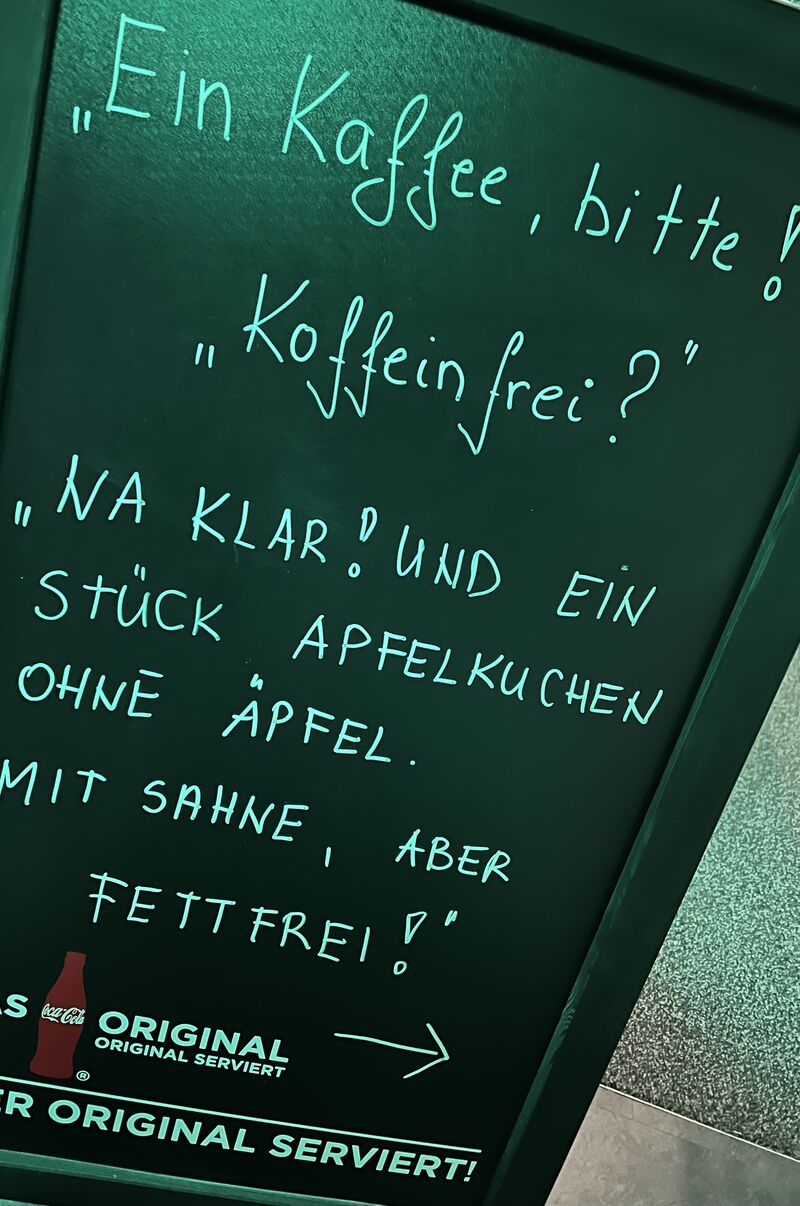 „Ein Kaffee, bitte!
„Koffeinfrei?"
„NA KLAR! UND EIN
STÜCK APFELKUCHEN
OHNE ÄPFEL.
MIT SAHNE, ABER
FETTFREI!"
Coca-Cola ORIGINAL
ORIGINAL SERVIERT
®
ORIGINAL SERVIERT!